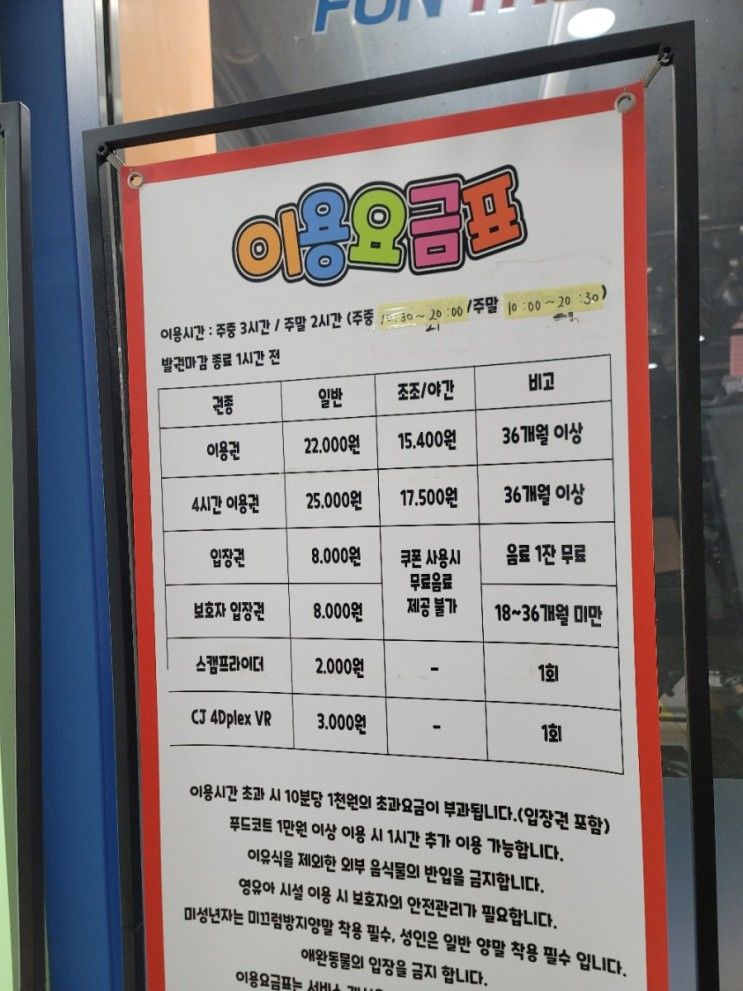 FUN THE
이용요금표
이용시간 : 주중 3시간 / 주말 2시간 (주중 :30~20:00 /주말 10:00~20:30)
발권마감 종료 1시간 전
권종 일반 조조/야간 비고
이용권 22.000원 15.400원 36개월 이상
4시간 이용권 25.000원 17.500원 36개월 이상
입장권 8.000원 쿠폰 사용시 음료 1잔 무료
무료음료
보호자 입장권 8.000원 제공 불가 18~36개월 미만
스캠프라이더 2.000원 - 1회
CJ 4Dplex VR 3.000원 - 1회
이용시간 초과 시 10분당 1천원의 초과요금이 부과됩니다.(입장권 포함)
푸드코트 1만원 이상 이용 시 1시간 추가 이용 가능합니다.
이유식을 제외한 외부 음식물의 반입을 금지합니다.
영유아 시설 이용 시 보호자의 안전관리가 필요합니다.
미성년자는 미끄럼방지양말 착용 필수, 성인은 일반 양말 착용 필수 입니다.
애완동물의 입장을 금지 합니다.
이용요금표는 서비스